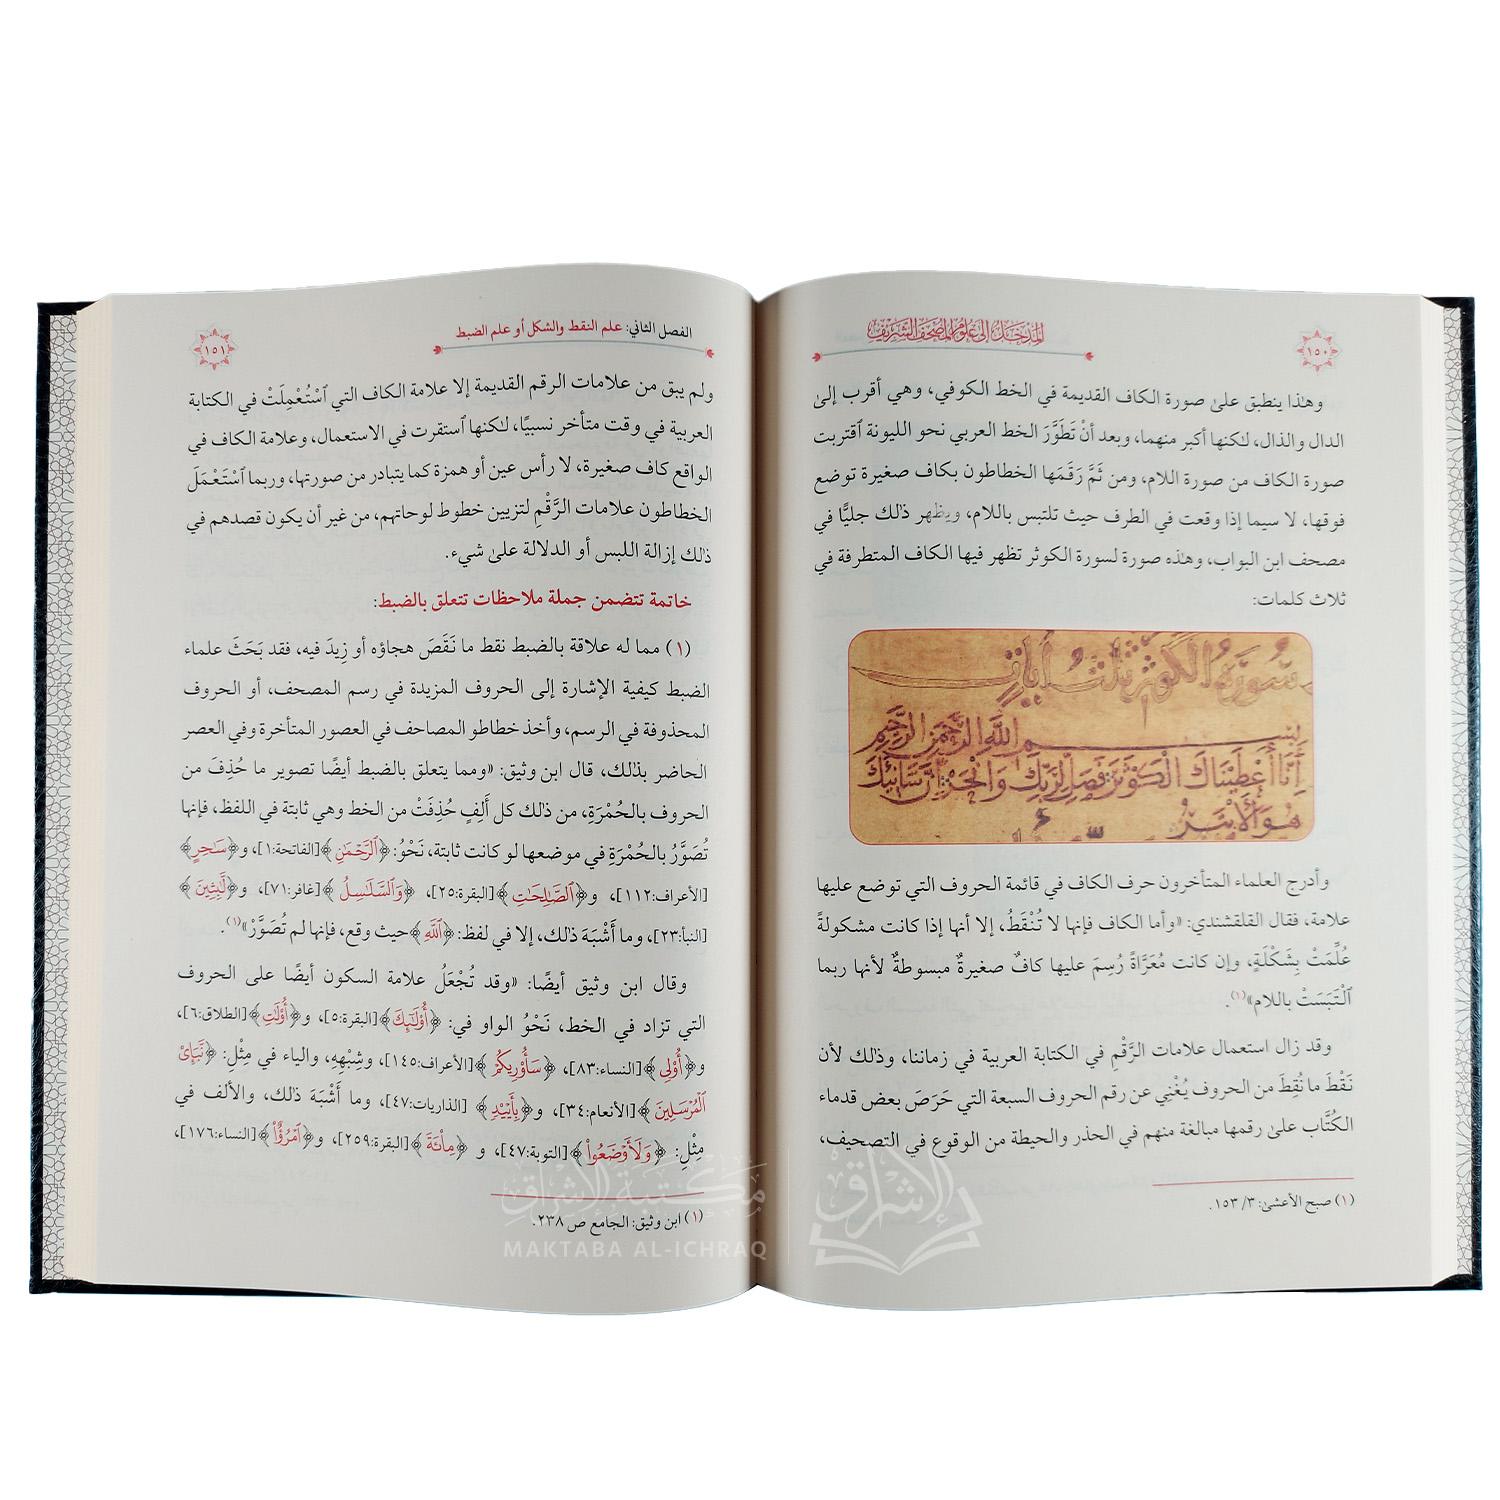 المدخل إلى علوم المصحف الشريف
١٥٠
وهٰذا ينطبق علىٰ صورة الكاف القديمة في الخط الكوفي، وهي أقرب إلىٰ
الدال والذال، لٰكنها أكبر منهما، وبعد أنْ تَطَوَّرَ الخط العربي نحو الليونة ٱقتربت
صورة الكاف من صورة اللام، ومن ثَمَّ رَقَمَها الخطاطون بكاف صغيرة توضع
فوقها، لا سيما إذا وقعت في الطرف حيث تلتبس باللام، ويظهر ذٰلك جليًّا في
مصحف ابن البواب، وهٰذه صورة لسورة الكوثر تظهر فيها الكاف المتطرفة في
ثلاث كلمات:
سُورَةُ الكَوْثَر ثلث آيات
بسم اللَّهِ الرَّحْمَنِ الرَّحِيمِ
إِنَّا أَعْطَيْنَاكَ الْكَوْثَرَ فَصَلِّ لِرَبِّكَ وَانْحَرْ إِنَّ شَانِئَكَ
هُوَ الْأَبْتَرُ
وأدرج العلماء المتأخرون حرف الكاف في قائمة الحروف التي توضع عليها
علامة، فقال القلقشندي: «وأما الكاف فإنها لا تُنْقَطُ، إلا أنها إذا كانت مشكولةً
عُلِّمَتْ بِشَكْلَةٍ، وإن كانت مُعَرَّاةً رُسِمَ عليها كافٌ صغيرةٌ مبسوطةٌ لأنها ربما
ٱلْتَبَسَتْ باللام»(١).
وقد زال استعمال علامات الرَّقْمِ في الكتابة العربية في زماننا، وذلك لأن
نَقْطَ ما نُقِطَ من الحروف يُغْنِي عن رقم الحروف السبعة التي حَرَصَ بعض قدماء
الكُتَّاب علىٰ رقمها مبالغة منهم في الحذر والحيطة من الوقوع في التصحيف،
(١) صبح الأعشىٰ: ٣/ ١٥٣.
الفصل الثاني: علم النقط والشكل أو علم الضبط
١٥١
ولم يبق من علامات الرقم القديمة إلا علامة الكاف التي ٱسْتُعْمِلَتْ في الكتابة
العربية في وقت متأخر نسبيًّا، لٰكنها ٱستقرت في الاستعمال، وعلامة الكاف في
الواقع كاف صغيرة، لا رأس عين أو همزة كما يتبادر من صورتها، وربما ٱسْتَعْمَلَ
الخطاطون علامات الرَّقْمِ لتزيين خطوط لوحاتهم، من غير أن يكون قصدهم في
ذٰلك إزالة اللبس أو الدلالة علىٰ شيء.
خاتمة تتضمن جملة ملاحظات تتعلق بالضبط:
(١) مما له علاقة بالضبط نقط ما نَقَّصَ هجاؤه أو زِيدَ فيه، فقد بَحَثَ علماء
الضبط كيفية الإشارة إلى الحروف المزيدة في رسم المصحف، أو الحروف
المحذوفة في الرسم، وأخذ خطاطو المصاحف في العصور المتأخرة وفي العصر
الحاضر بذٰلك، قال ابن وثيق: «ومما يتعلق بالضبط أيضًا تصوير ما حُذِفَ من
الحروف بالحُمْرَةِ، من ذلك كل أَلِفٍ حُذِفَتْ من الخط وهي ثابتة في اللفظ، فإنها
تُصَوَّرُ بالحُمْرَةِ في موضعها لو كانت ثابتة، نَحْوُ: ﴿ٱلرَّحْمَـٰنِ﴾[الفاتحة:١]، و﴿سَـٰحِرٍ﴾
[الأعراف:١١٢]، و﴿ٱلصَّـٰلِحَـٰتِ﴾[البقرة:٢٥]، ﴿وَٱلسَّلَـٰسِلُ﴾[غافر:٧١]، و﴿لَّـٰبِثِينَ﴾
[النبأ:٢٣]، وما أَشْبَهَ ذلك، إلا في لفظ: ﴿ٱللَّهِ﴾حيث وقع، فإنها لم تُصَوَّرْ»(١).
وقال ابن وثيق أيضًا: «وقد تُجْعَلُ علامة السكون أيضًا على الحروف
التي تزاد في الخط، نَحْوُ الواو في: ﴿أُوْلَـٰٓئِكَ﴾[البقرة:٥]، و﴿أُوْلَـٰتِ﴾[الطلاق:٦]،
و﴿أُوْلِى﴾[النساء:٨٣]، ﴿سَأُوْرِيكُمْ﴾[الأعراف:١٤٥]، وشِبْهِهِ، والياء في مِثْلِ: ﴿نَّبَإِىْ
ٱلْمُرْسَلِينَ﴾[الأنعام:٣٤]، و﴿بِأَيْيدٍ﴾[الذاريات:٤٧]، وما أَشْبَهَ ذلك، والألف في
مِثْلِ: ﴿وَلَأَوْضَعُواْ﴾[التوبة:٤٧]، و ﴿مِاْئَةَ﴾[البقرة:٢٥٩]، و﴿ٱمْرُؤٌاْ﴾[النساء:١٧٦]،
(١) ابن وثيق: الجامع ص ٢٣٨.
مكتبة الإشراق
MAKTABA AL-ICHRAQ
الإشراق